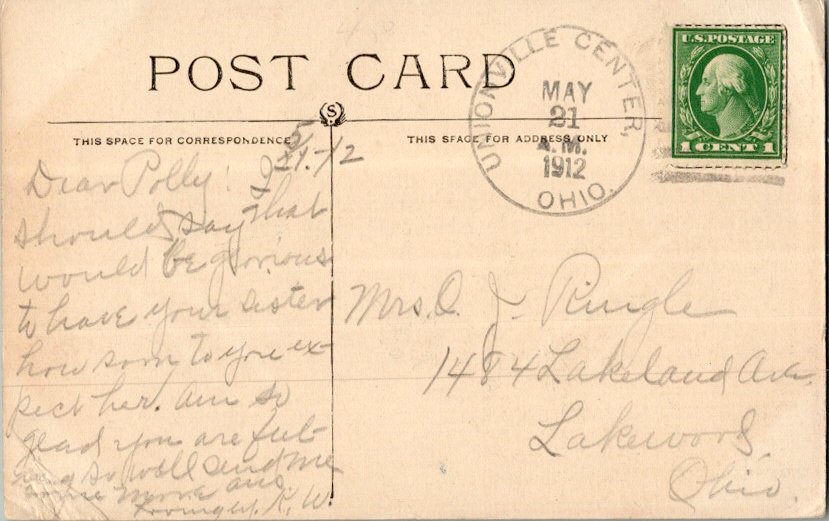 POST CARD
S
THIS SPACE FOR CORRESPONDENCE
THIS SPACE FOR ADDRESS ONLY
UNIONVILLE CENTER,
MAY
21
A.M.
1912
OHIO.
U.S. POSTAGE
1 CENT 1
5-21-12
Dear Polly! I
should say that
would be glorious
to have your sister
how soon to you ex-
pect her. Am so
glad you are feel-
ing so well and
some more
K. W.
Mrs. O. J. Ringle
1484 Lakeland Ave.
Lakewood,
Ohio.